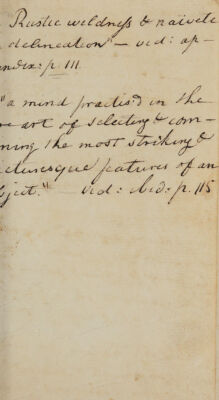 Rustic wildness & naiveté
delineation" — vid: ap-
endix: p. 111.
"a mind practis'd in the
art of selecting & com-
ning the most striking &
cturesque features of an
ject." vid: ibid: p. 115